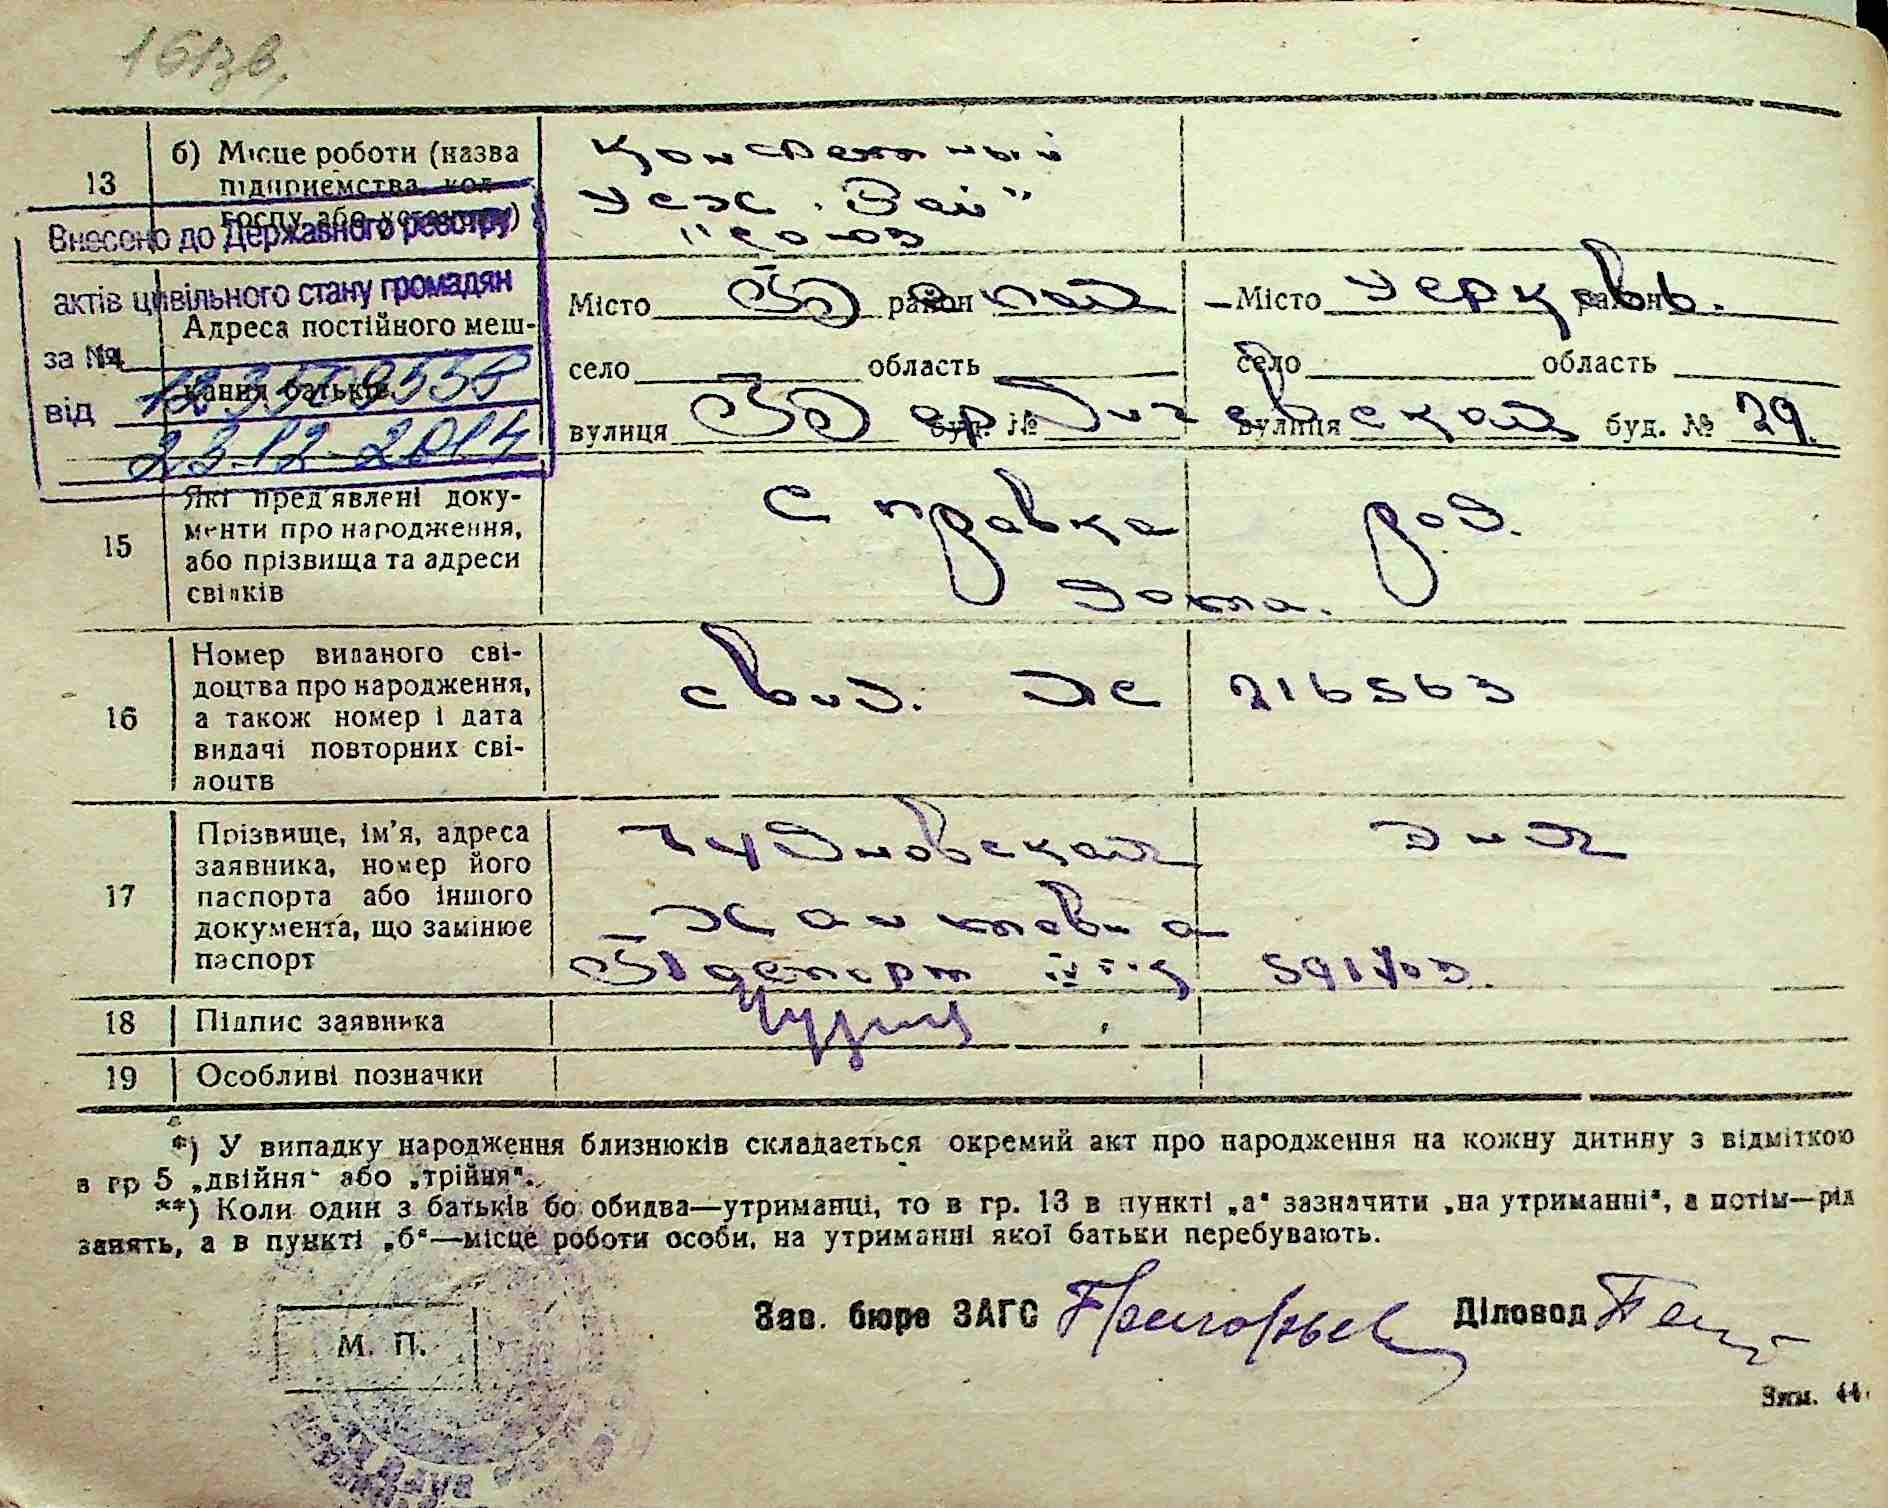 161зв.
13
б) Місце роботи (назва
підприємства, кол-
госпу або установи)
Кондетный
Цех
союз
Внесено до Державного реєстру
актів цивільного стану громадян
за №
від
23.12.2014
Адреса постійного меш-
кання батьків
Місто Белая район
Місто Церковь. район
село область
село область
вулиця Бердичевская буд. №
вулиця буд. № 29.
15
Які пред'явлені доку-
менти про народження,
або прізвища та адреси
свідків
Справка род.
дома.
16
Номер виданого сві-
доцтва про народження,
а також номер і дата
видачі повторних сві-
доцтв
Свид. ЖС 216563
17
Прізвище, ім'я, адреса
заявника, номер його
паспорта або іншого
документа, що замінює
паспорт
Чудновская
591703.
18
Підпис заявника
19
Особливі позначки
*) У випадку народження близнюків складається окремий акт про народження на кожну дитину з відміткою
в гр 5 „двійня“ або „трійня“.
**) Коли один з батьків бо обидва—утриманці, то в гр. 13 в пункті „а“ зазначити „на утриманні“, а потім—рід
занять, а в пункті „б“—місце роботи особи, на утриманні якої батьки перебувають.
М. П.
Зав. бюро ЗАГС
Діловод
Зам. 44